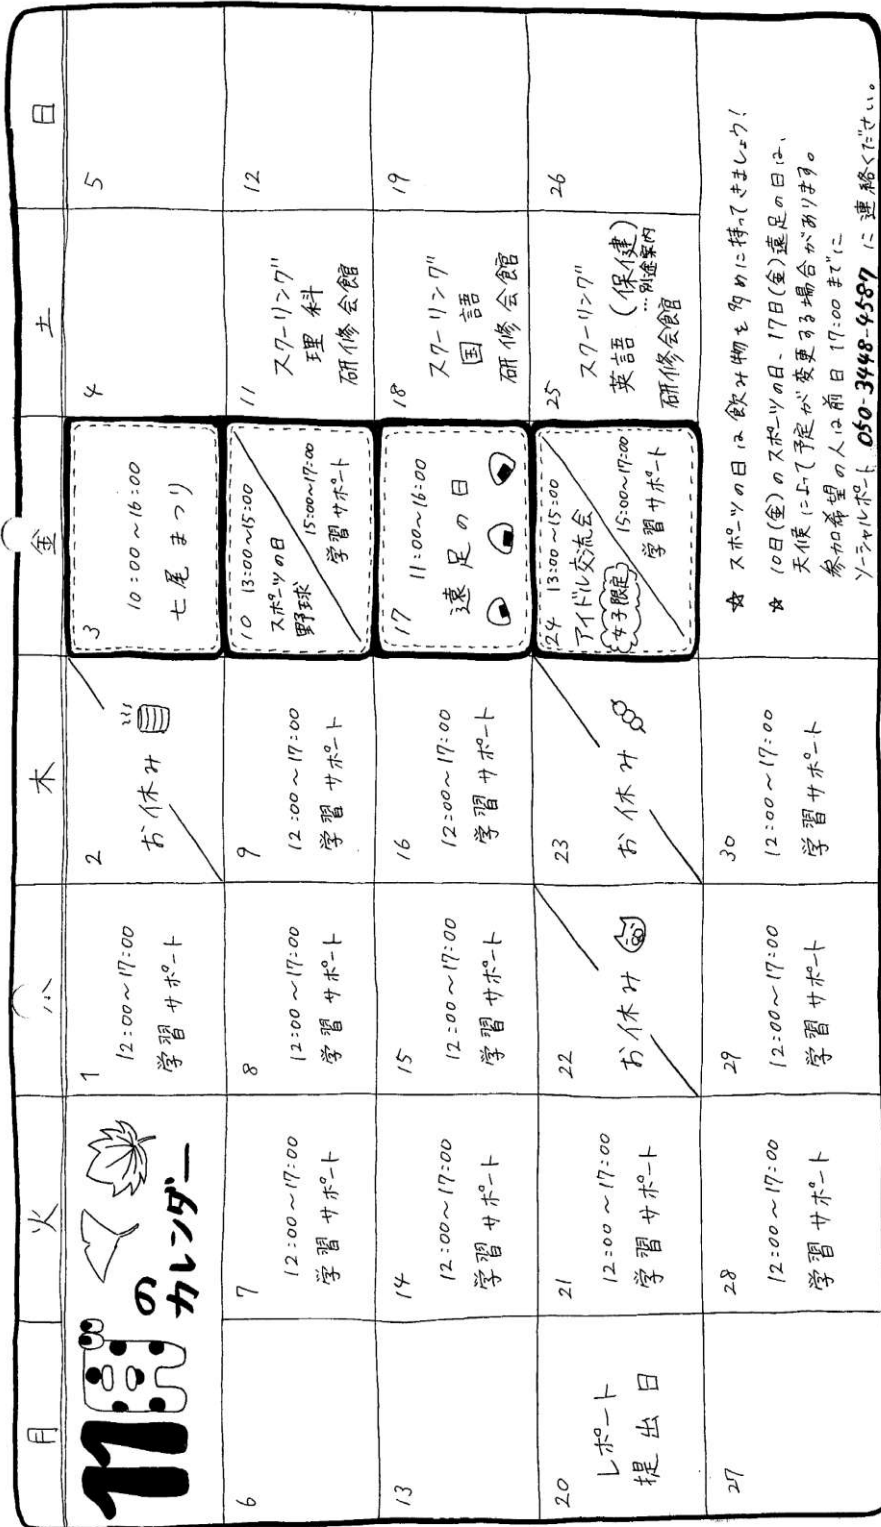 11月
の
カレンダー
月 火 水 木 金 土 日
1
12:00~17:00
学習サポート
2
お休み
3
10:00~16:00
七尾まつり
4
5
6
7
12:00~17:00
学習サポート
8
12:00~17:00
学習サポート
9
12:00~17:00
学習サポート
10 13:00~15:00
スポーツの日
野球
15:00~17:00
学習サポート
11
スクーリング
理科
研修会館
12
13
14
12:00~17:00
学習サポート
15
12:00~17:00
学習サポート
16
12:00~17:00
学習サポート
17
11:00~16:00
遠足の日
18
スクーリング
国語
研修会館
19
20
レポート
提出日
21
12:00~17:00
学習サポート
22
お休み
23
お休み
24 13:00~15:00
アイドル交流会
女子限定
15:00~17:00
学習サポート
25
スクーリング
英語(保健)
…別途案内
研修会館
26
27
28
12:00~17:00
学習サポート
29
12:00~17:00
学習サポート
30
12:00~17:00
学習サポート
☆ スポーツの日は飲み物を多めに持ってきましょう!
☆ 10日(金)のスポーツの日、17日(金)遠足の日は、
天候によって予定が変更する場合があります。
参加希望の人は前日17:00までに
ソーシャルポート 050-3448-4587 に連絡ください。